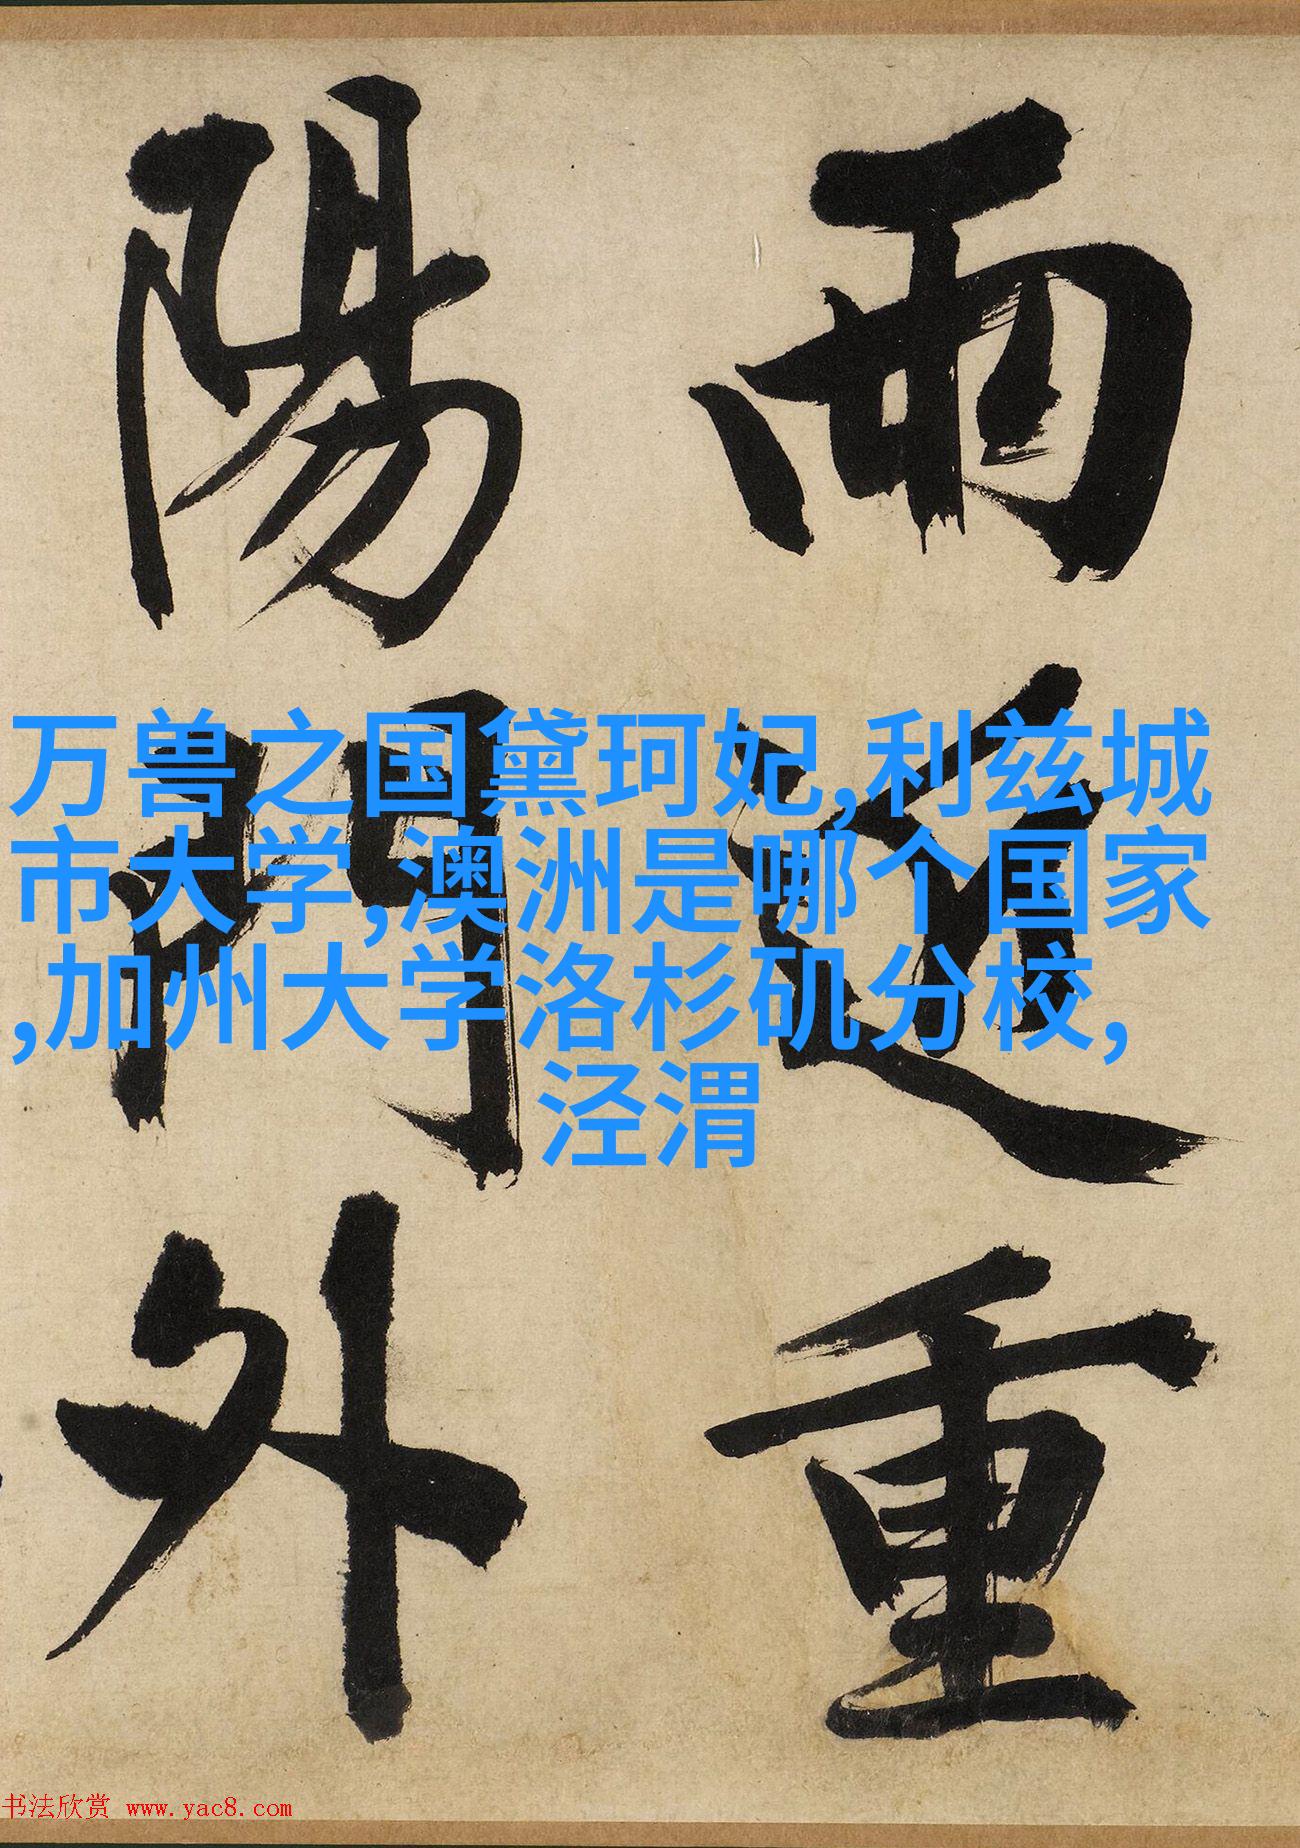 雨近重
陽門外
万兽之国黛珂妃,利兹城
市大学,澳洲是哪个国家
,加州大学洛杉矶分校,
泾渭
书法欣赏 www.yac8.com